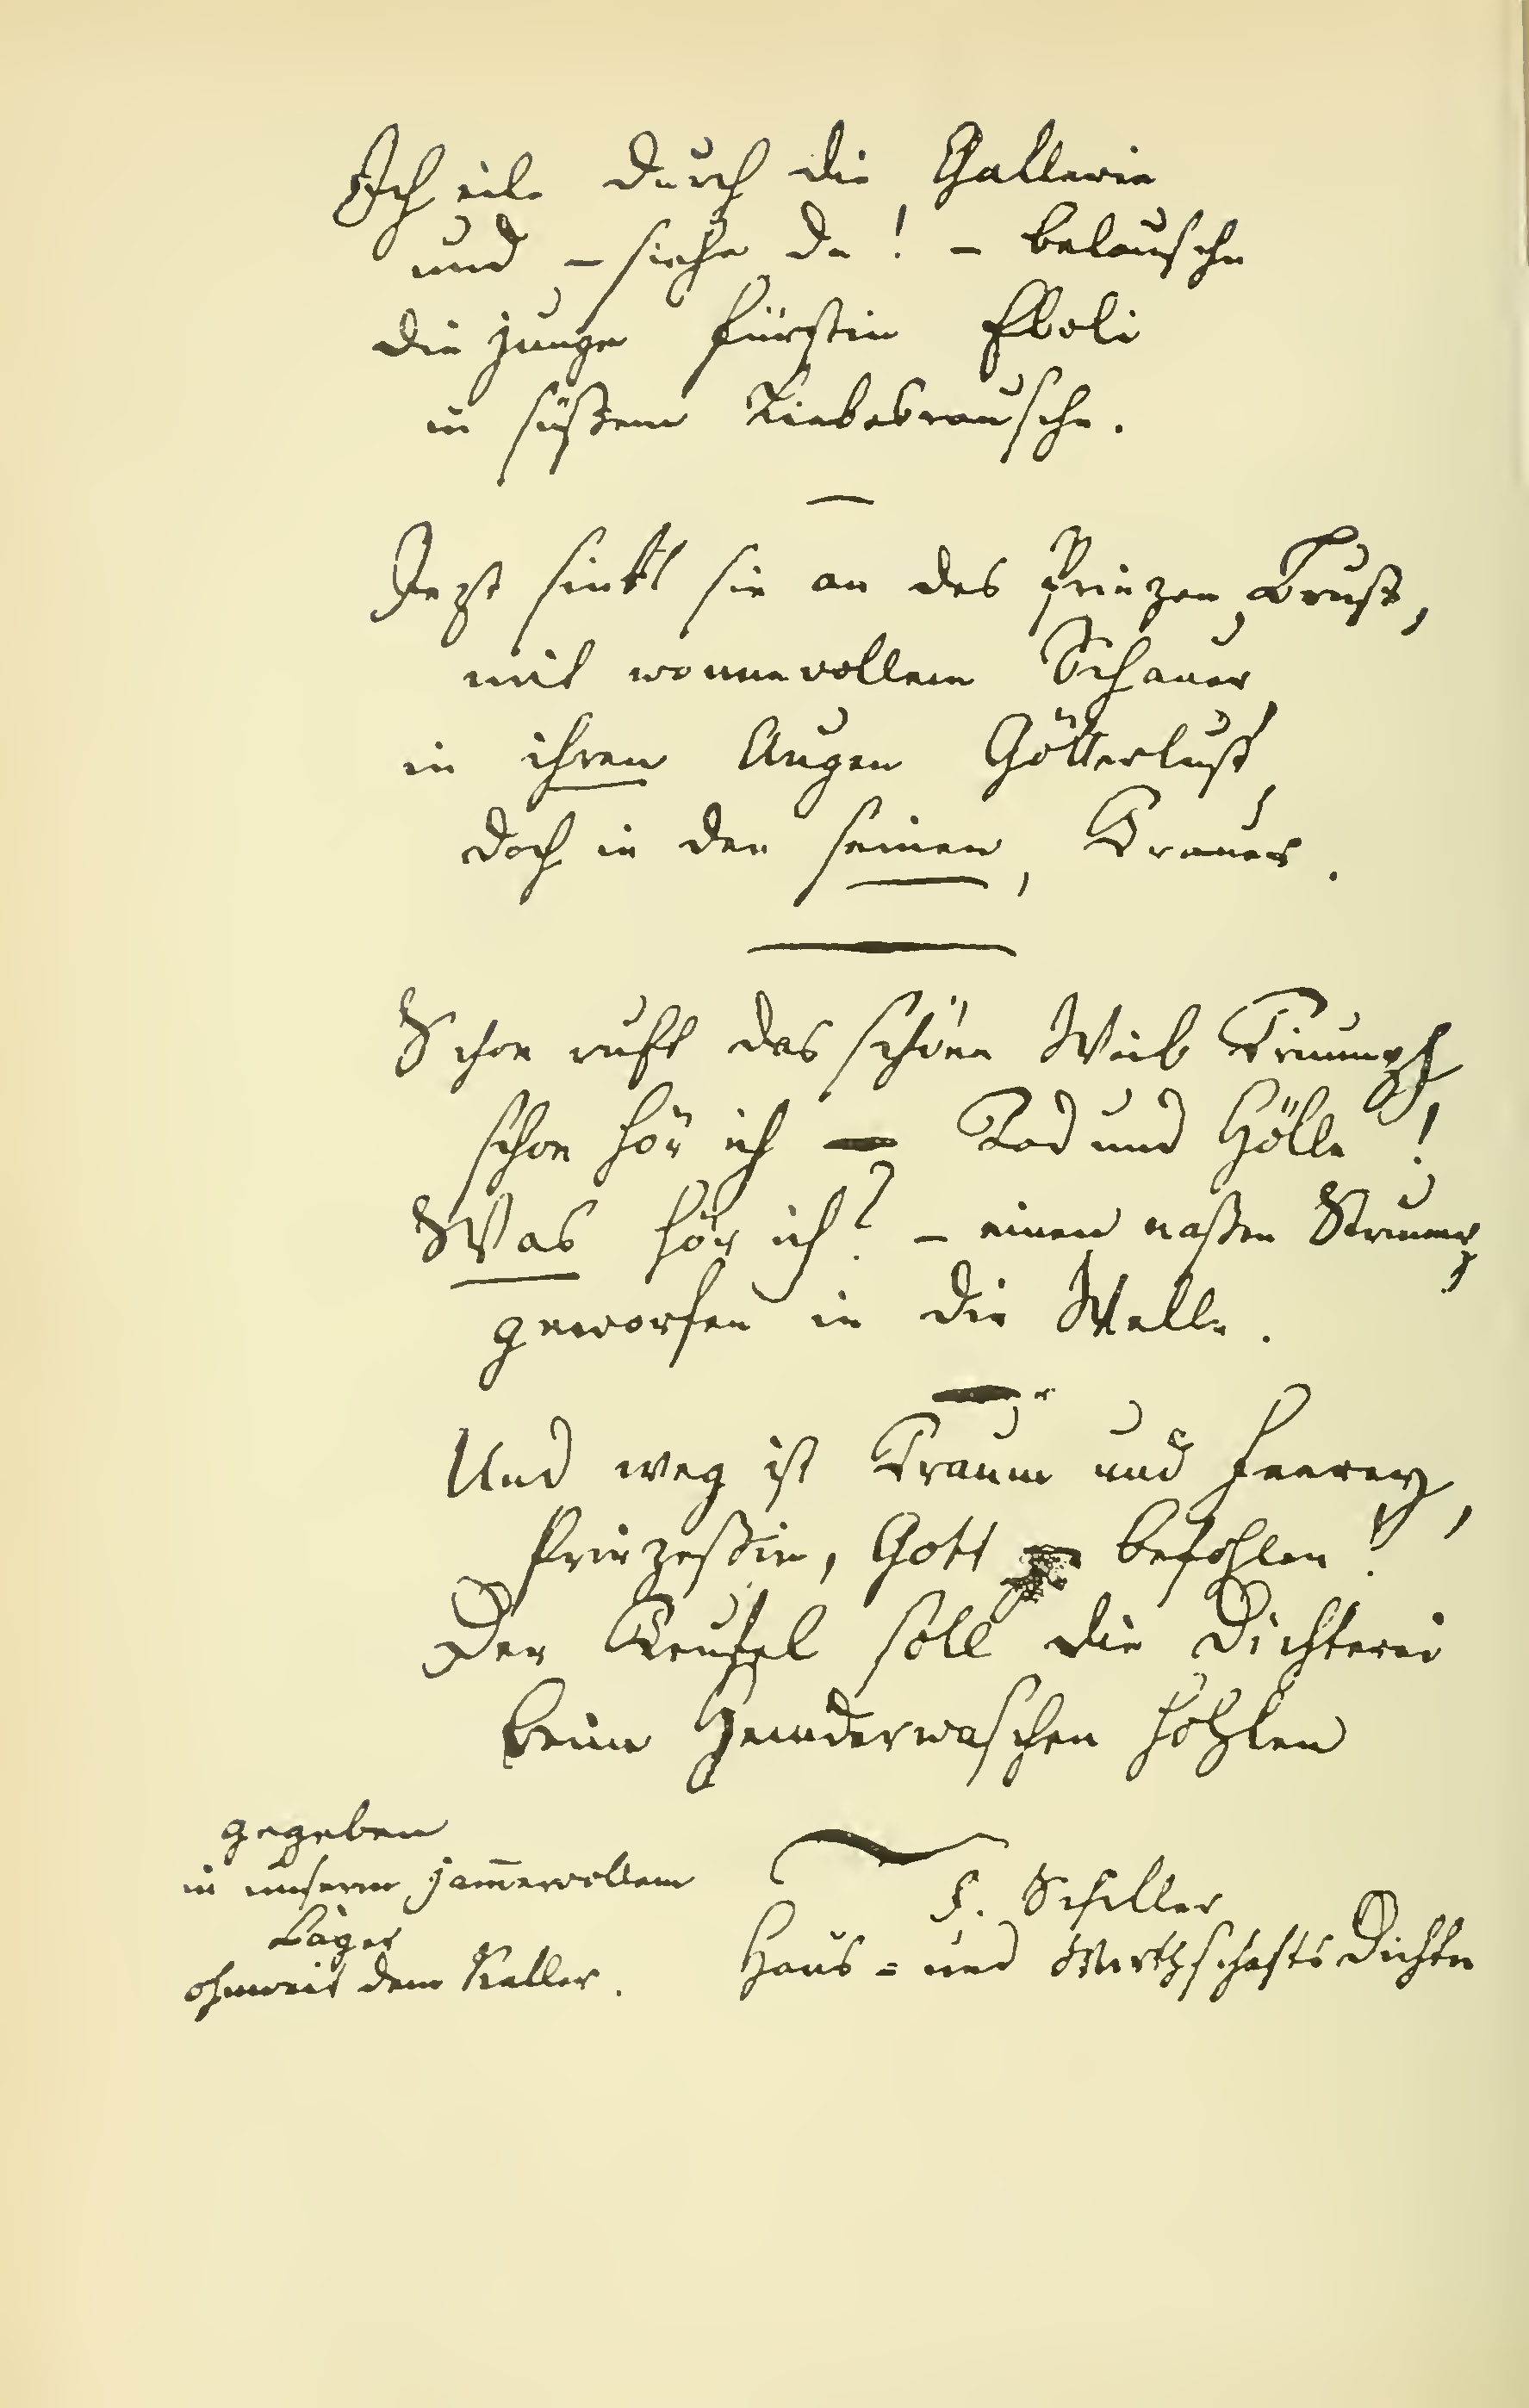 Ich eile durch die Gallerie
und – siehe da! – belausche
die junge Fürstin Eboli
in süßem Liebesrausche.
Jezt sinkt sie an des Prinzen Brust,
mit wonnevollem Schauer
in ihren Augen Götterlust,
doch in den seinen, Trauer.
Schon ruft das schöne Weib Triumph,
schon hör ich – Tod und Hölle!
Was hör ich? – einen naßen Strumpf
geworfen in die Welle.
Und weg ist Traum und Feerey,
Prinzeßin, Gott befohlen!
Der Teufel soll die Dichterei
beim Hemderwaschen hohlen
gegeben
in unserm jam̄ervollem
Lager
ohnweit dem Keller.
F. Schiller
Haus- und Wirthschafts Dichter